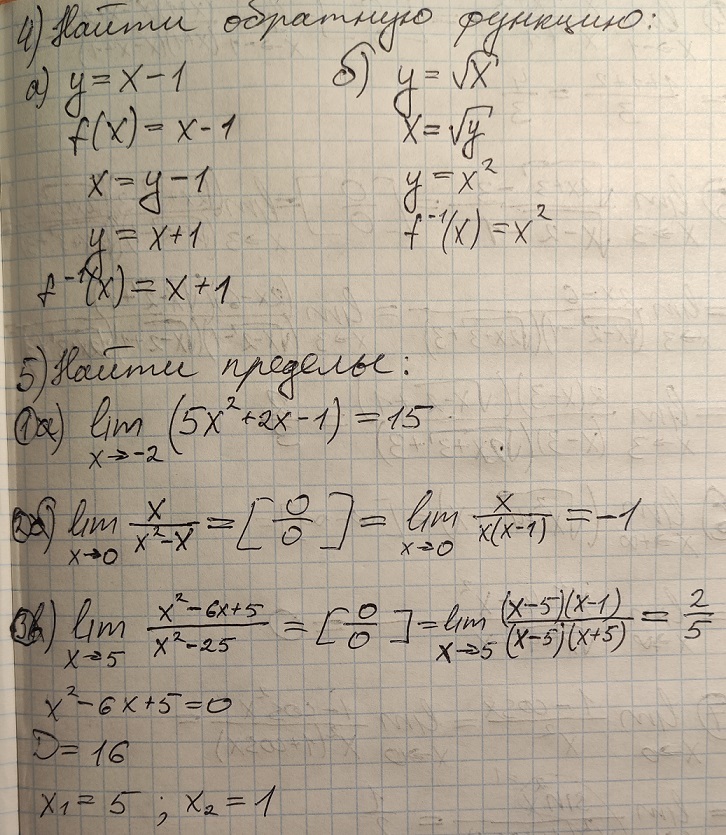 4) Найти обратную функцию:
а) y = x - 1
f(x) = x - 1
x = y - 1
y = x + 1
f⁻¹(x) = x + 1
б) y = √x
x = √y
y = x²
f⁻¹(x) = x²
5) Найти пределы:
① а) lim x→-2 (5x² + 2x - 1) = 15
② б) lim x→0 x/(x² - x) = [0/0] = lim x→0 x/(x(x-1)) = -1
③ в) lim x→5 (x² - 6x + 5)/(x² - 25) = [0/0] = lim x→5 ((x-5)(x-1))/((x-5)(x+5)) = 2/5
x² - 6x + 5 = 0
D = 16
x₁ = 5 ; x₂ = 1